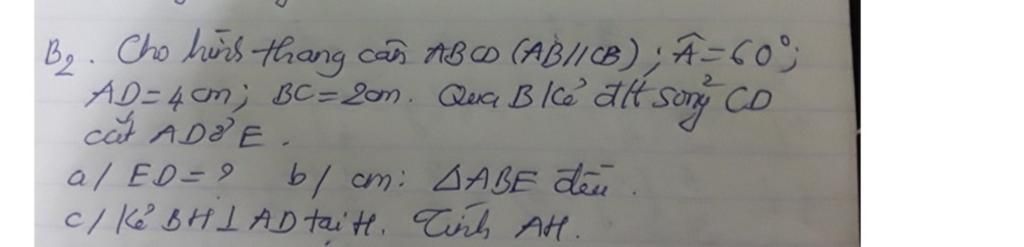 B2. Cho hình thang cân ABCD (AB//CB); Â=60°;
AD=4cm; BC=2cm. Qua B kẻ đ/t song² CD
cắt AD ở E.
a/ ED=? b/ cm: ΔABE đều.
c/ Kẻ BH⊥AD tại H. Tính AH.